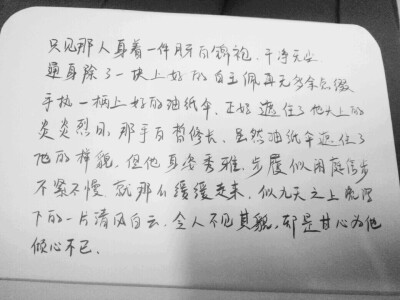 只见那人身着一件月牙白锦袍，干净无尘
通身除了一块上好的白玉佩再无多余点缀
手执一柄上好的油纸伞，正好遮住了他头上的
炎炎烈日，那手白皙修长，虽然油纸伞遮住了
他的样貌，但他真绝秀雅，步履似闲庭信步
不紧不慢 就那么缓缓走来，似九天之上飘落
下的一片清风白云，令人不见其貌，却是甘心为他
倾心不已．